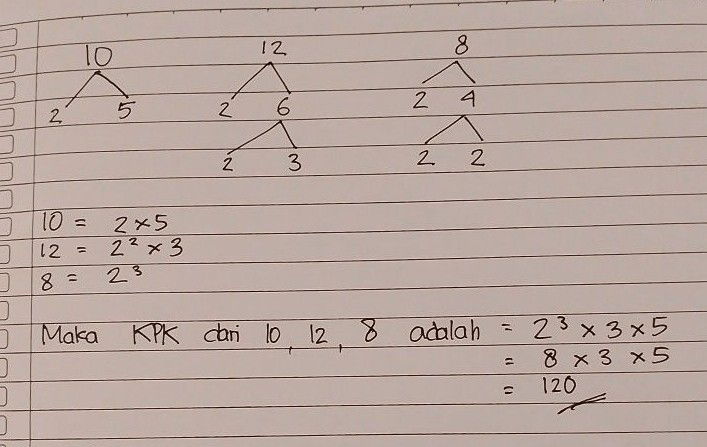 10 12 8
2 5 2 6 2 4
2 3 2 2
10 = 2 × 5
12 = 2² × 3
8 = 2³
Maka KPK dari 10, 12, 8 adalah = 2³ × 3 × 5
= 8 × 3 × 5
= 120